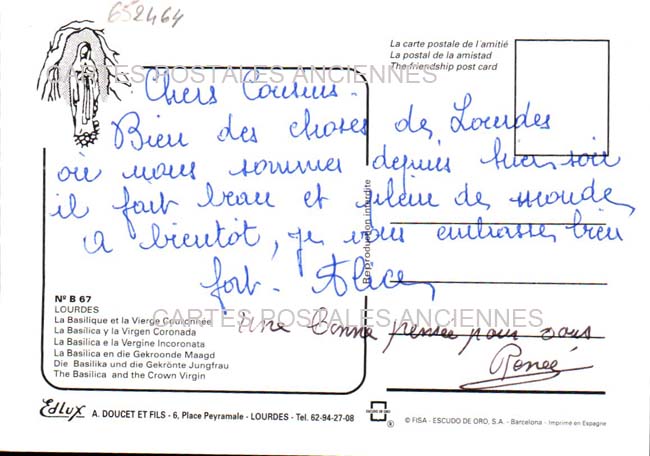 652464
La carte postale de l'amitié
La postal de la amistad
The friendship post card
CARTES POSTALES ANCIENNES
Chers Cousins.
Bien des choses de Lourdes
où nous sommes depuis hier soir
il fait beau et plein de monde,
a bientôt, je vous embrasse bien
fort. Alice,
Reproduction interdite
Nº B 67
LOURDES
La Basilique et la Vierge Couronnée
La Basílica y la Virgen Coronada
La Basilica e la Vergine Incoronata
La Basilica en die Gekroonde Maagd
Die Basilika und die Gekrönte Jungfrau
The Basilica and the Crown Virgin
CARTES POSTALES ANCIENNES
une bonne pensée pour vous
Renée
Edlux A. DOUCET ET FILS - 6, Place Peyramale - LOURDES - Tel. 62-94-27-08
ESCUDO DE ORO
® © FISA - ESCUDO DE ORO, S.A. - Barcelona - Imprimé en Espagne